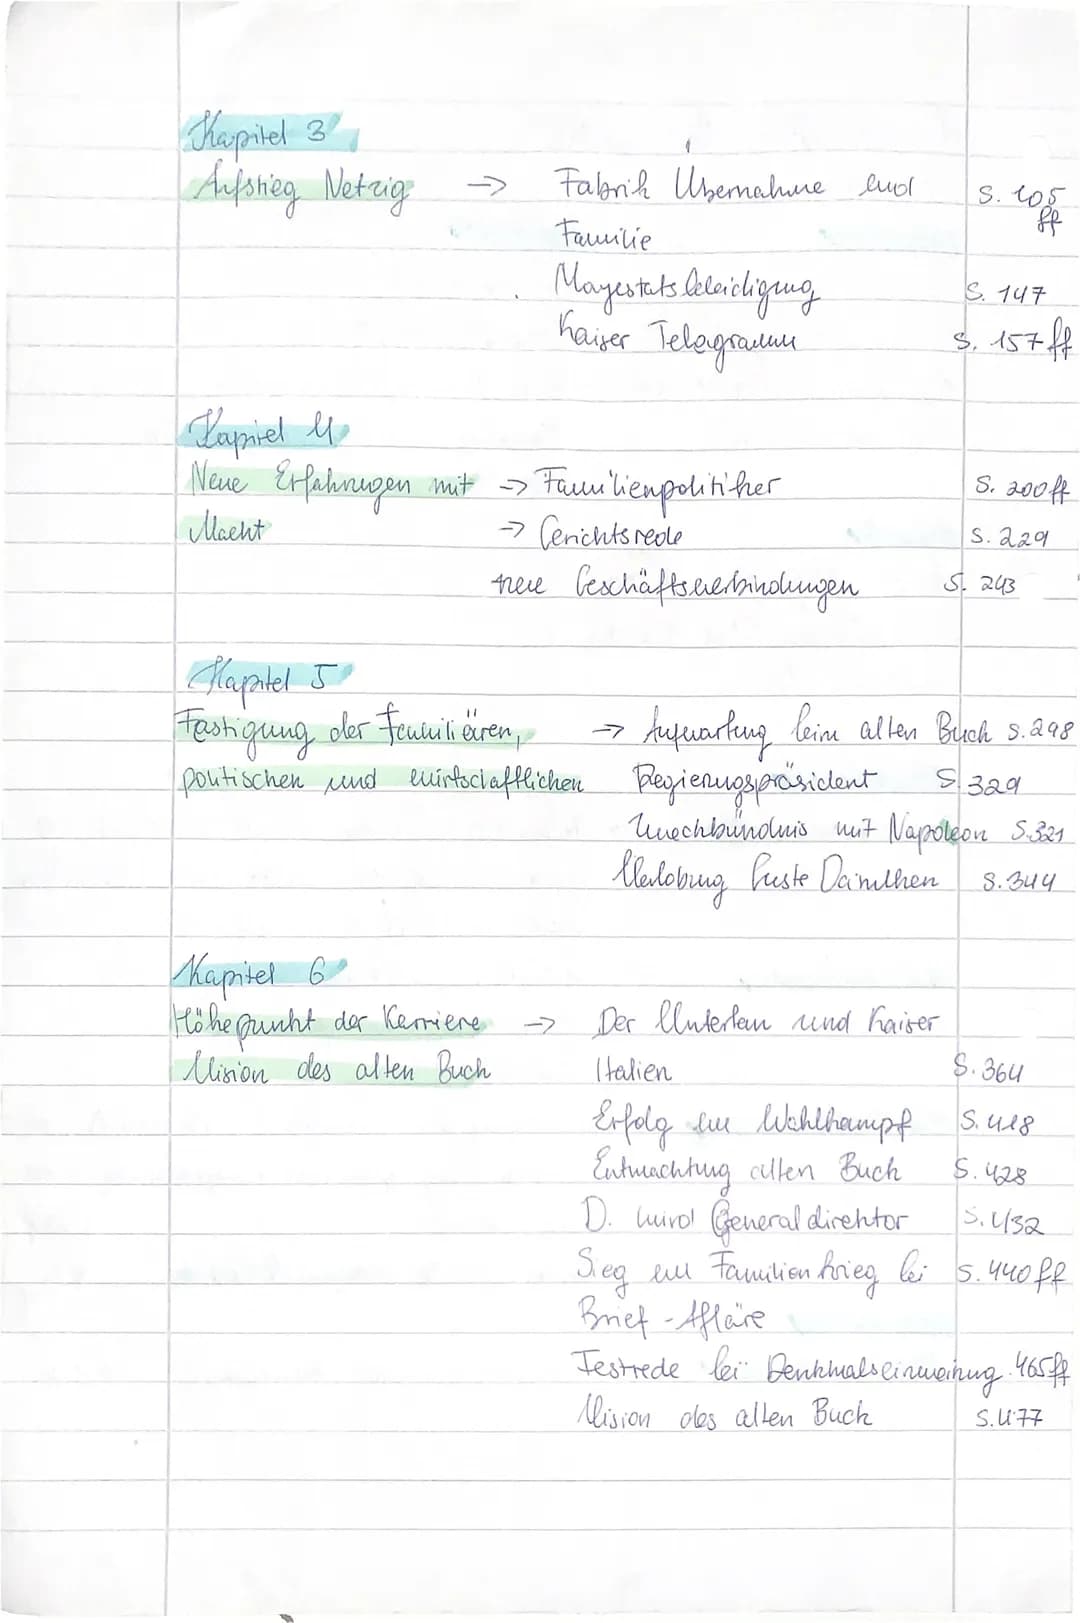 Kapitel 3
Aufstieg Netzig → Fabrik Übernahme und S. 105 ff
Familie
Mayestatsbeleidigung S. 147
Kaiser Telegramm S. 157 ff
Kapitel 4
Neue Erfahrungen mit → Familienpolitiker S. 200 ff
Macht → Gerichtsrede S. 229
neue Geschäftsverbindungen S. 243
Kapitel 5
Festigung der familiären, → Aufwartung beim alten Buck S. 298
politischen und wirtschaftlichen Regierungspräsident S. 329
Zweckbündnis mit Napoleon S. 321
Verlobung Guste Daimchen S. 344
Kapitel 6
Höhepunkt der Karriere → Der Untertan und Kaiser
Vision des alten Buck Italien S. 364
Erfolg im Wahlkampf S. 418
Entmachtung alten Buck S. 428
D. wird Generaldirektor S. 432
Sieg im Familienkrieg bei S. 440 ff
Brief-Affäre
Festrede bei Denkmalseinweihung 465 ff
Vision des alten Buck S. 477